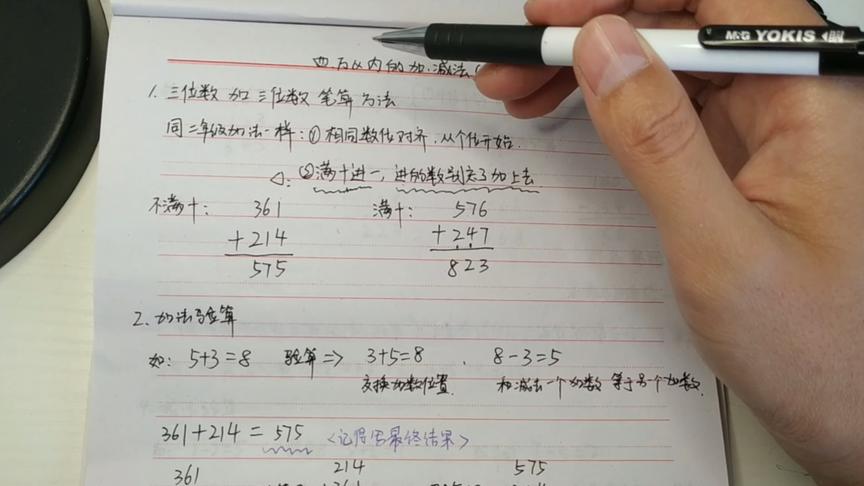 M&G YOKIS
四 万以内的加.减法
1. 三位数 加 三位数 笔算方法
同二年级加法一样:①相同数位对齐,从个位开始.
△: ②满十进一,进的数别忘了加上去.
不满十: 361 满十: 576
+214 +247
575 823
2. 加法验算
如: 5+3=8 验算=> 3+5=8 . 8-3=5
交换加数位置. 和减去一个加数 等于另个加数.
361+214=575 <记得写最终结果>
361 214 575